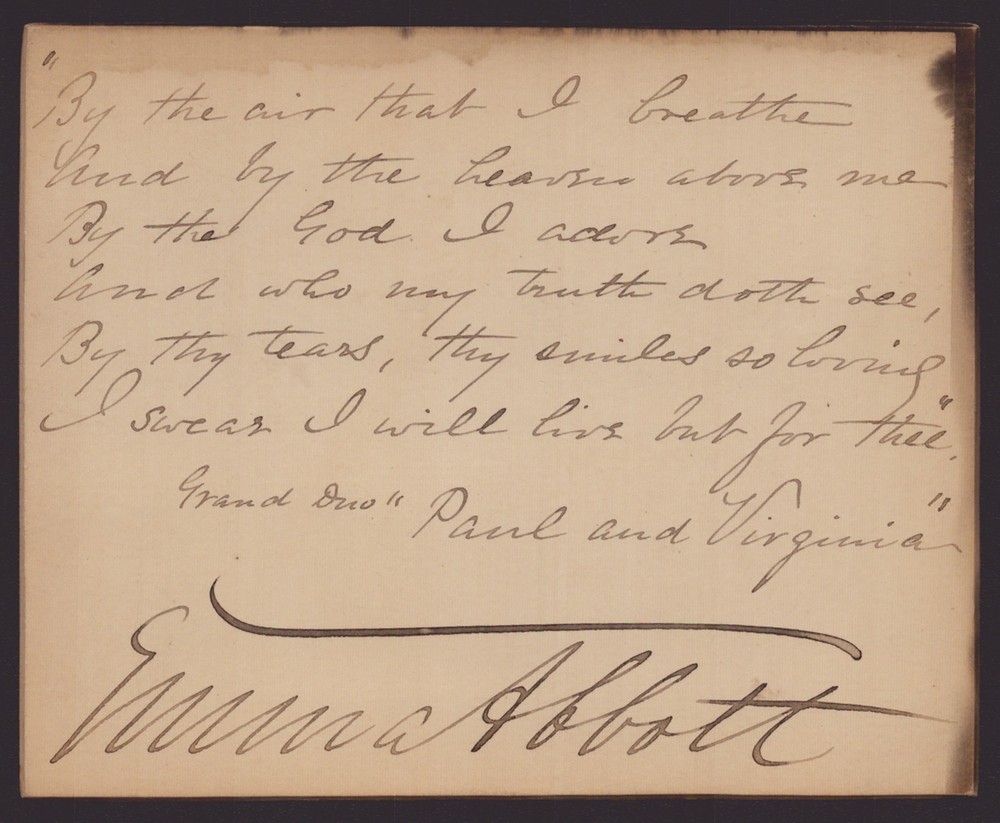 "By the air that I breathe
And by the heaven above me
By the God I adore
And who my truth doth see,
By thy tears, thy smiles so loving
I swear I will live but for thee."
Grand Duo "Paul and Virginia"
Emma Abbott